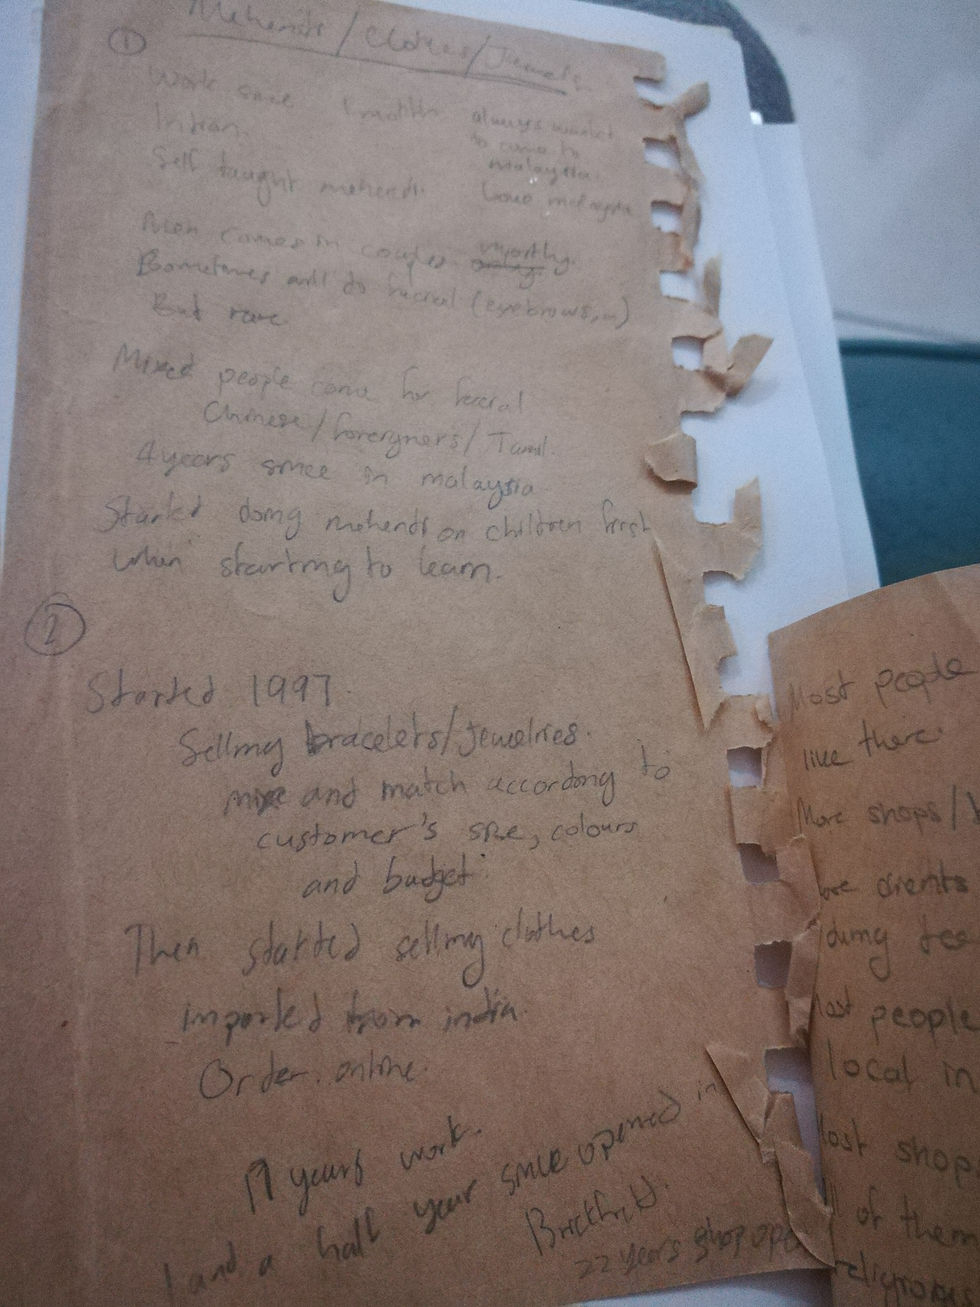 Mehendi / Clothes / Jewels
①
Work since 1 month
Indian.
Self taught mehendi.
always wanted
to come to
malaysia.
Love malaysia
Men comes in couples.
Sometimes will do facial (eyebrows,...)
But rare
Mixed people come for facial
Chinese / foreigners / Tamil.
4 years since in malaysia
Started doing mehendi on children first
when starting to learn.
②
Started 1997.
Selling bracelets/jewelries.
mix and match according to
customer's size, colours
and budget.
Then started selling clothes
imported from india
Order online.
17 years work.
1 and a half year since opened in
Brickfield.
22 years shop ope
Most people
live there.
More shops /
clients
during
people
local in
shop
of them
religious